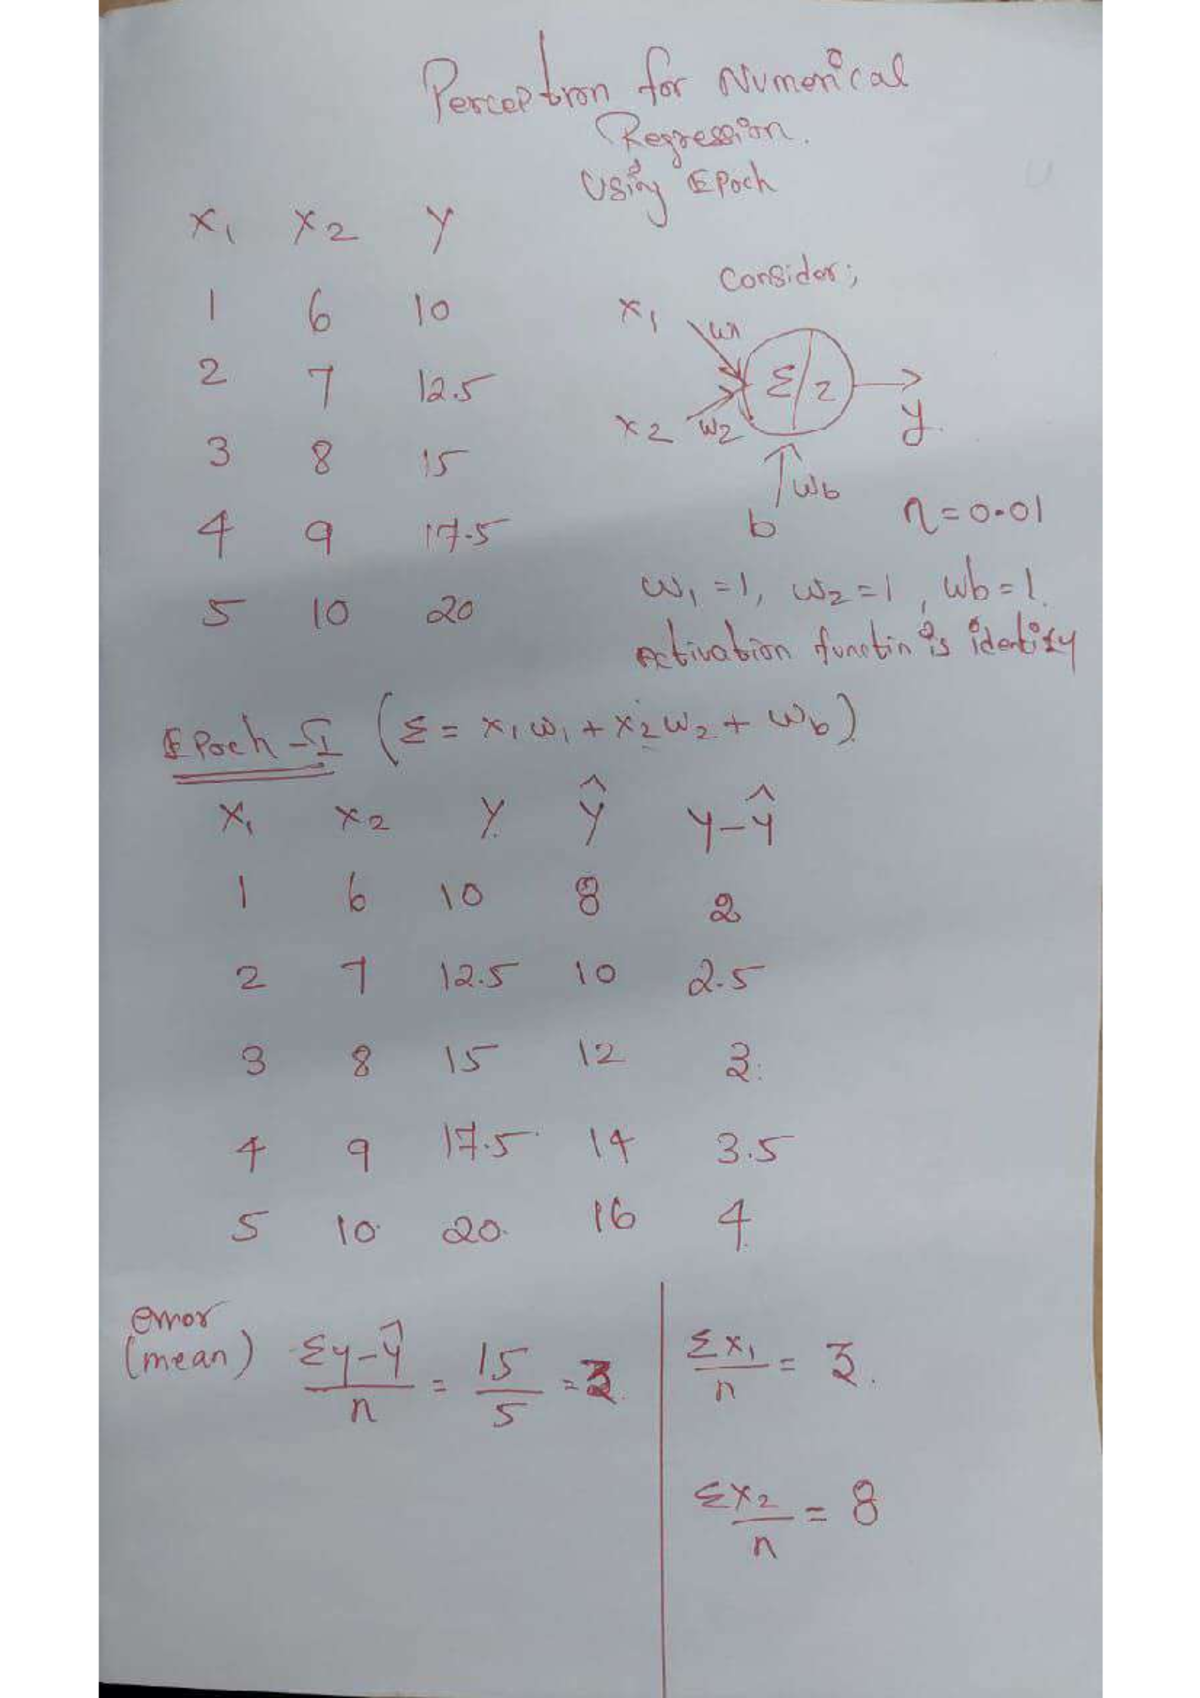 Perceptron for Numerical
Regression.
Using Epoch
x₁ x₂ y
1 6 10
2 7 12.5
3 8 15
4 9 17.5
5 10 20
Consider;
x₁ w₁
Σ/z
x₂ w₂ y.
wb
b η=0.01
w₁=1, w₂=1, wb=1.
Activation functin is identity
Epoch-I (Σ = x₁w₁ + x₂w₂ + wb)
x₁ x₂ y ŷ y-ŷ
1 6 10 8 2
2 7 12.5 10 2.5
3 8 15 12 3.
4 9 17.5 14 3.5
5 10. 20. 16 4
error
(mean) Σy-ŷ/n = 15/5 = 3.
Σx₁/n = 3.
Σx₂/n = 8